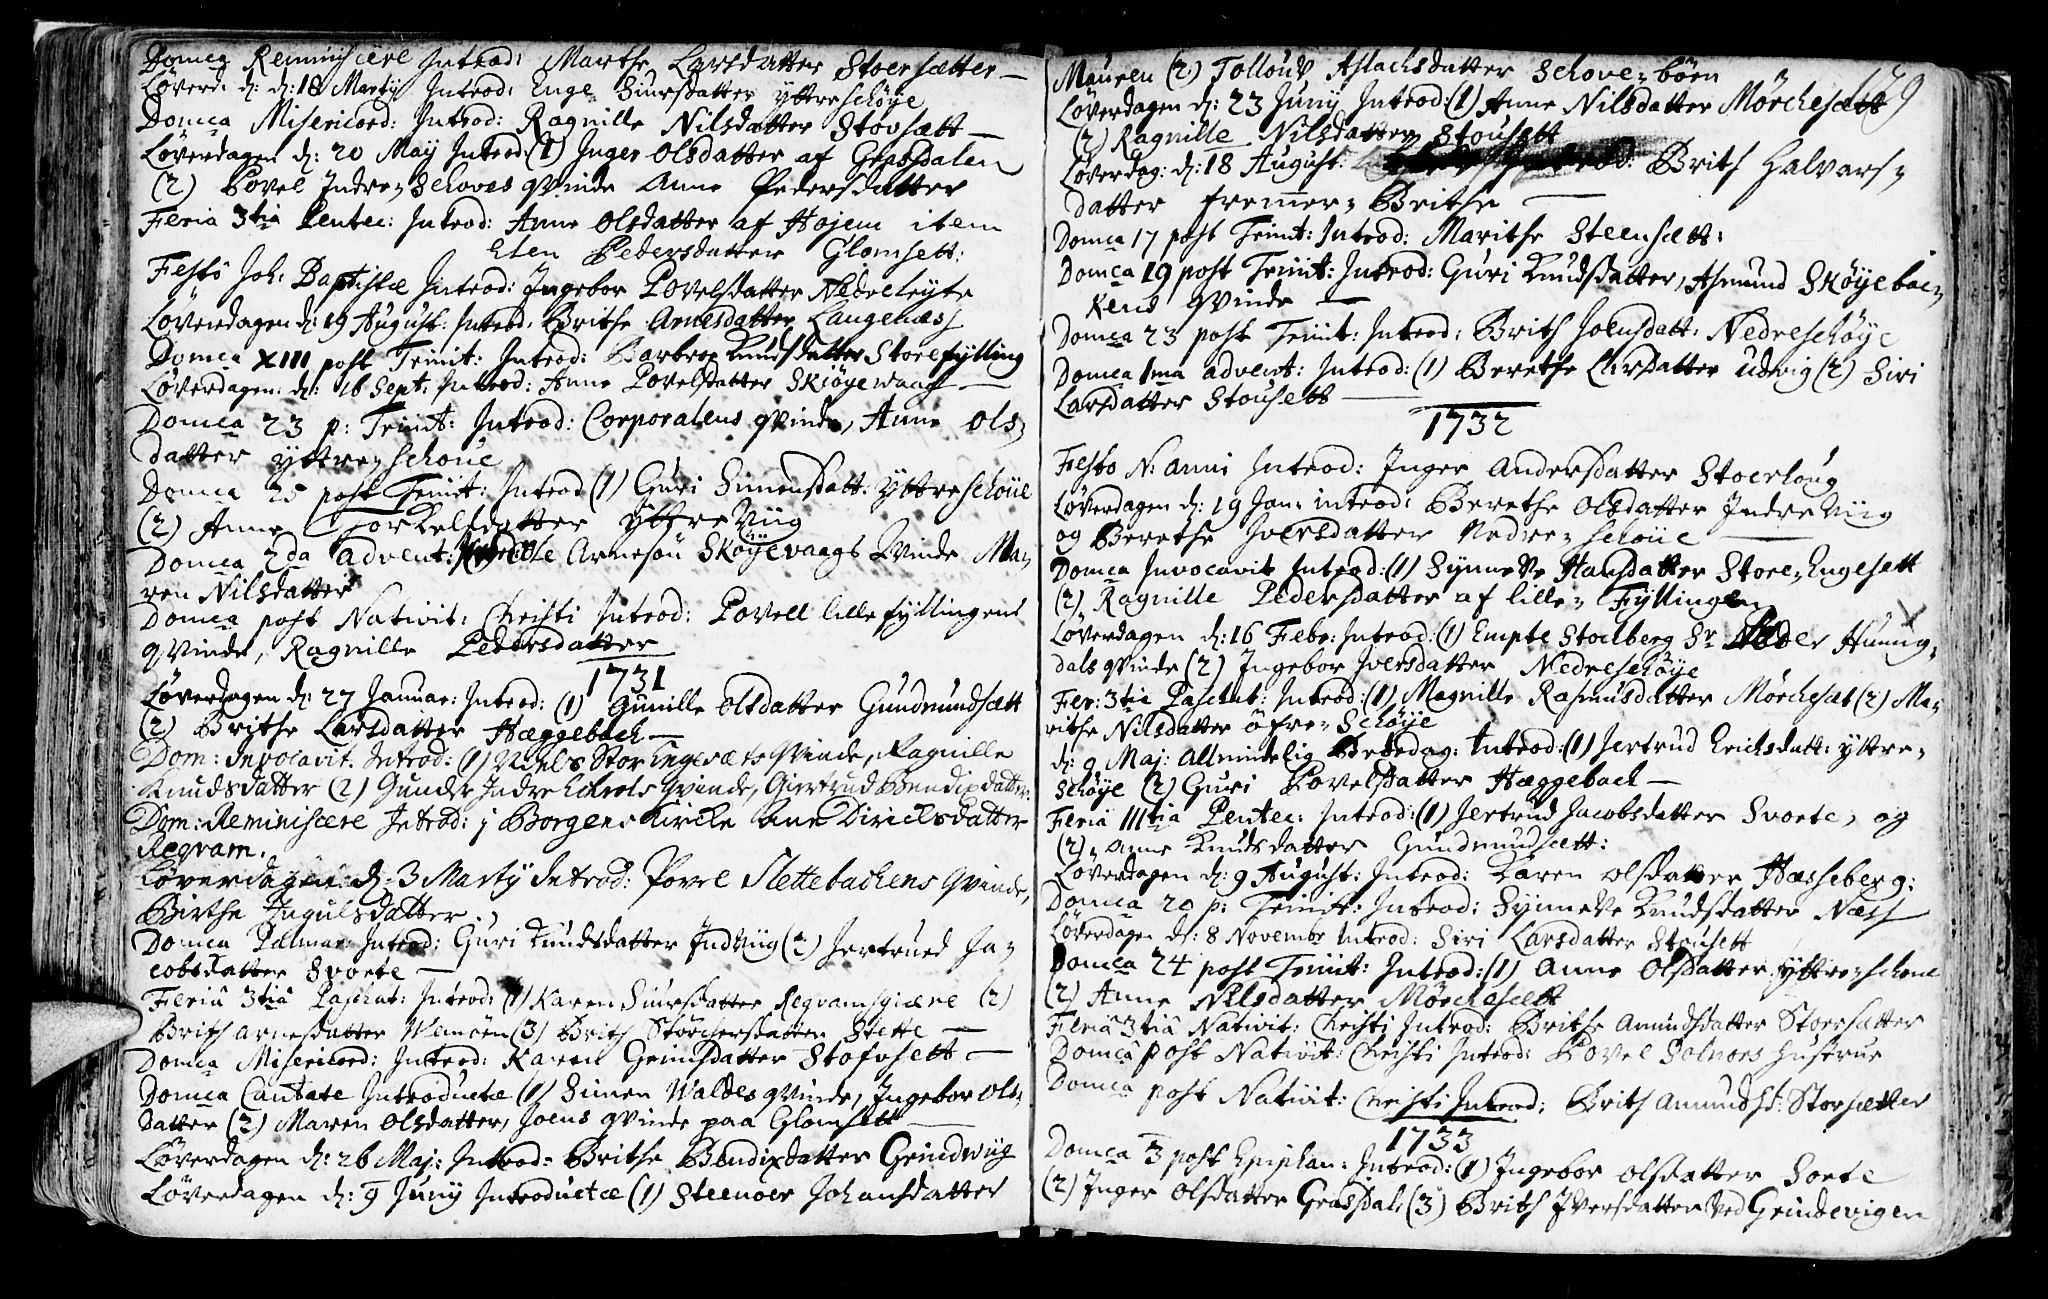 Domca Reminiscere Introd: Marthe Larsdatter Stoersætter
Løverd: d: 18 Martij Introd: Enge Siursdatter yttreschøye
Domca Misericord: Introd: Ragnille Nilsdatter Stovsætt
Løverdagen d: 20 Maij Introd: (1) Inger Olsdatter af
(2) Povel Indre, Schoves qvinde Anne Pedersdatter
Feria 3tia Pentec: Introd: Anne Olsdatter af Hojem item
Elen Pedersdatter Glomsett:
Festo Joh: Baptistæ Introd: Ingebor Povelsdatter
Løverdagen d: 19 August: Introd: Brithe Arnesdatter Langenæs
Domca XIII post Trinit: Introd: Barbroe Knudsdatter Storefylling
Løverdagen: d: 16 Sept: Introd: Anne Povelsdatter Skiøyewaag
Domca 23 p: Trinit: Introd: Corporalens qvinde, Anne Ols,
datter yttre, schoue
Domca 25 post Trinit: Introd (1) Guri Simonsdatt: yttreschoue
(2) Anne Torkelsdatter yttreViig
Domca 2da advent: Arnesøn Skøyevaags Qvinde Ma,
ren Nilsdatter
Domca post Nativit: Christi Introd: Povell lillefyllingens
qvinde, Ragnille Pedersdatter
1731
Løverdagen d: 27 Januar: Introd: (1) Gunille Olsdatter Gundmundsætt
(2) Brithe Larsdatter Hæggeback
Dom: Invocavit. Introd: (1) Niels Stor Engesæts Qvinde, Ragnille
Knudsdatter (2) Gunder Indre Qvinde, Giertrud Bendixdatter
Dom: Reminiscere Introd: j Borgens Kircke Ane Diricksdatter
Reqvam.
Løverdagen d. 3 Martij Introd: Povel Slettebachens Qvinde,
Birthe Ingulsdatter
Domca Palmar: Introd: Guri Knudsdatter Indviig (2) Jertrued Ja,
cobsdatter Svorte
Feriâ 3tiâ Paschat: Introd: (1) Karen Siursdatter Reqvamsgiære (2)
Brith Arnesdatter (3) Brith Størchersdatter Slette
Domca Misericord: Introd: Karen Grimsdatter Stofsett
Domca Cantate Introductæ (1) Simen Waldes qvinde, Ingebor Ols,
datter (2) Maren Olsdatter, Joens qvinde paa Glomsett
Løverdagen d: 26 Maj: Introd: Brithe Bendixdatter Grindwiig
Løverdagen d: 9 Junij Introductæ (1) Steenoer Johansdatter
Mauren (2) Tollouv Aslachsdatter Schove, bøen
179
Løverdagen d: 23 Junij Introd: (1) Anne Nilsdatter Mørchesætt
(2) Ragnille Nilsdatter Stousett
Løverdag: d: 18 August: Introd: Brith Halvars,
datter fremer, Brithe
Domca 17 post Trinit: Introd: Marithe Steensætt:
Domca 19 post Trinit: Introd: Guri Knudsdatter, Asmund Skøyebac,
kens qvinde
Domca 23 post Trinit: Introd: Brith Joensdatt: Nedreschøye
Domca 1ma advent: Introd: (1) Berethe udvig (2) Siri
Larsdatter Stousett
1732
Festo N: Anni Introd: Inger Andersdatter Stoerloug
Løverdagen d: 19 Jan: introd: Berethe Olsdatter Indreviig
og Berethe Iversdatter Nedre, schoue
Domca Invocavit Introd: (1) Synneve Hansdatter Store, Engesett
(2) Ragnille Pedersdatter af lille, Fyllingen
Løverdagen d: 16 Febr: Introd: (1) Empte Stodberg Sr Peder
dals qvinde (2) Ingebor Iversdatter Nedreschøye
Fer: 3tia Paschat: Introd: (1) Magnille Rasmusdatter Mørchesæt (2) Ma,
rithe Nilsdatter øfre, Schøye
d: 9 Maj: Allmindelig Bededag: Introd: (1) Jertrud Erichsdatt: yttre,
schøye (2) Guri Povelsdatter Hæggeback
Feriâ IIItiâ Pentec: Introd: (1) Jertrud Jacobsdatter Svorte, og
(2), Anne Knudsdatter Gundmundsætt:
Løverdagen d: 9 August: Introd: Karen Olsdatter Hæsseberg:
Domca 20 p: Trinit: Introd: Synneve Knudsdatter Næss
Løverdagen d: 8 Novembr Introd: Siri Larsdatter Stousett
Domca 24 post Trinit: Introd: (1) Anne Olsdatter yttre, schoue
(2) Anne Nilsdatter Mørchesætt
Feriâ 3tiâ Nativit: Christi Introd: Brithe Amundsdatter Stoersætter
Domcâ post Nativit: Christi Introd: Povel Solnoes Hustrue
Domca post Nativit: Christi Introd: Brith Amundsd: Storsætter
1733
Domca 3 post Epiphan: Introd: (1) Ingebor Olsdatter Sorte
(2) Inger Olsdatter Græsdal, (3) Brith Iversdatter ved Grindevigen